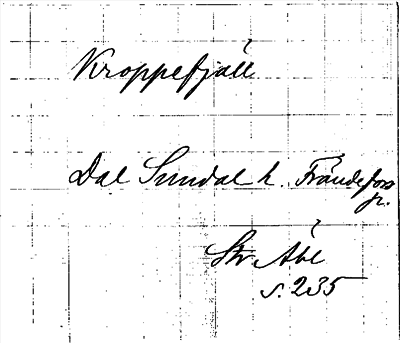 Kroppefjäll
Dal Sundal h. Frändefors
fr.
Str Åbl
s. 235